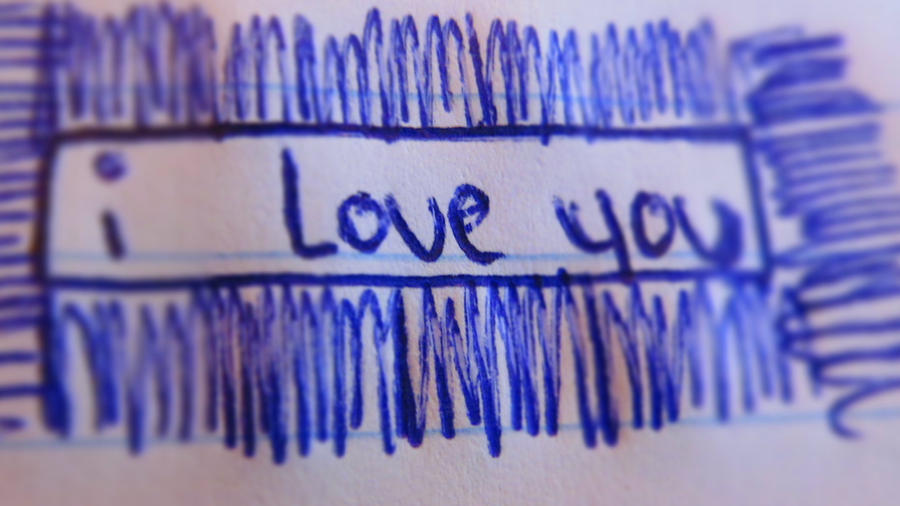 i Love you